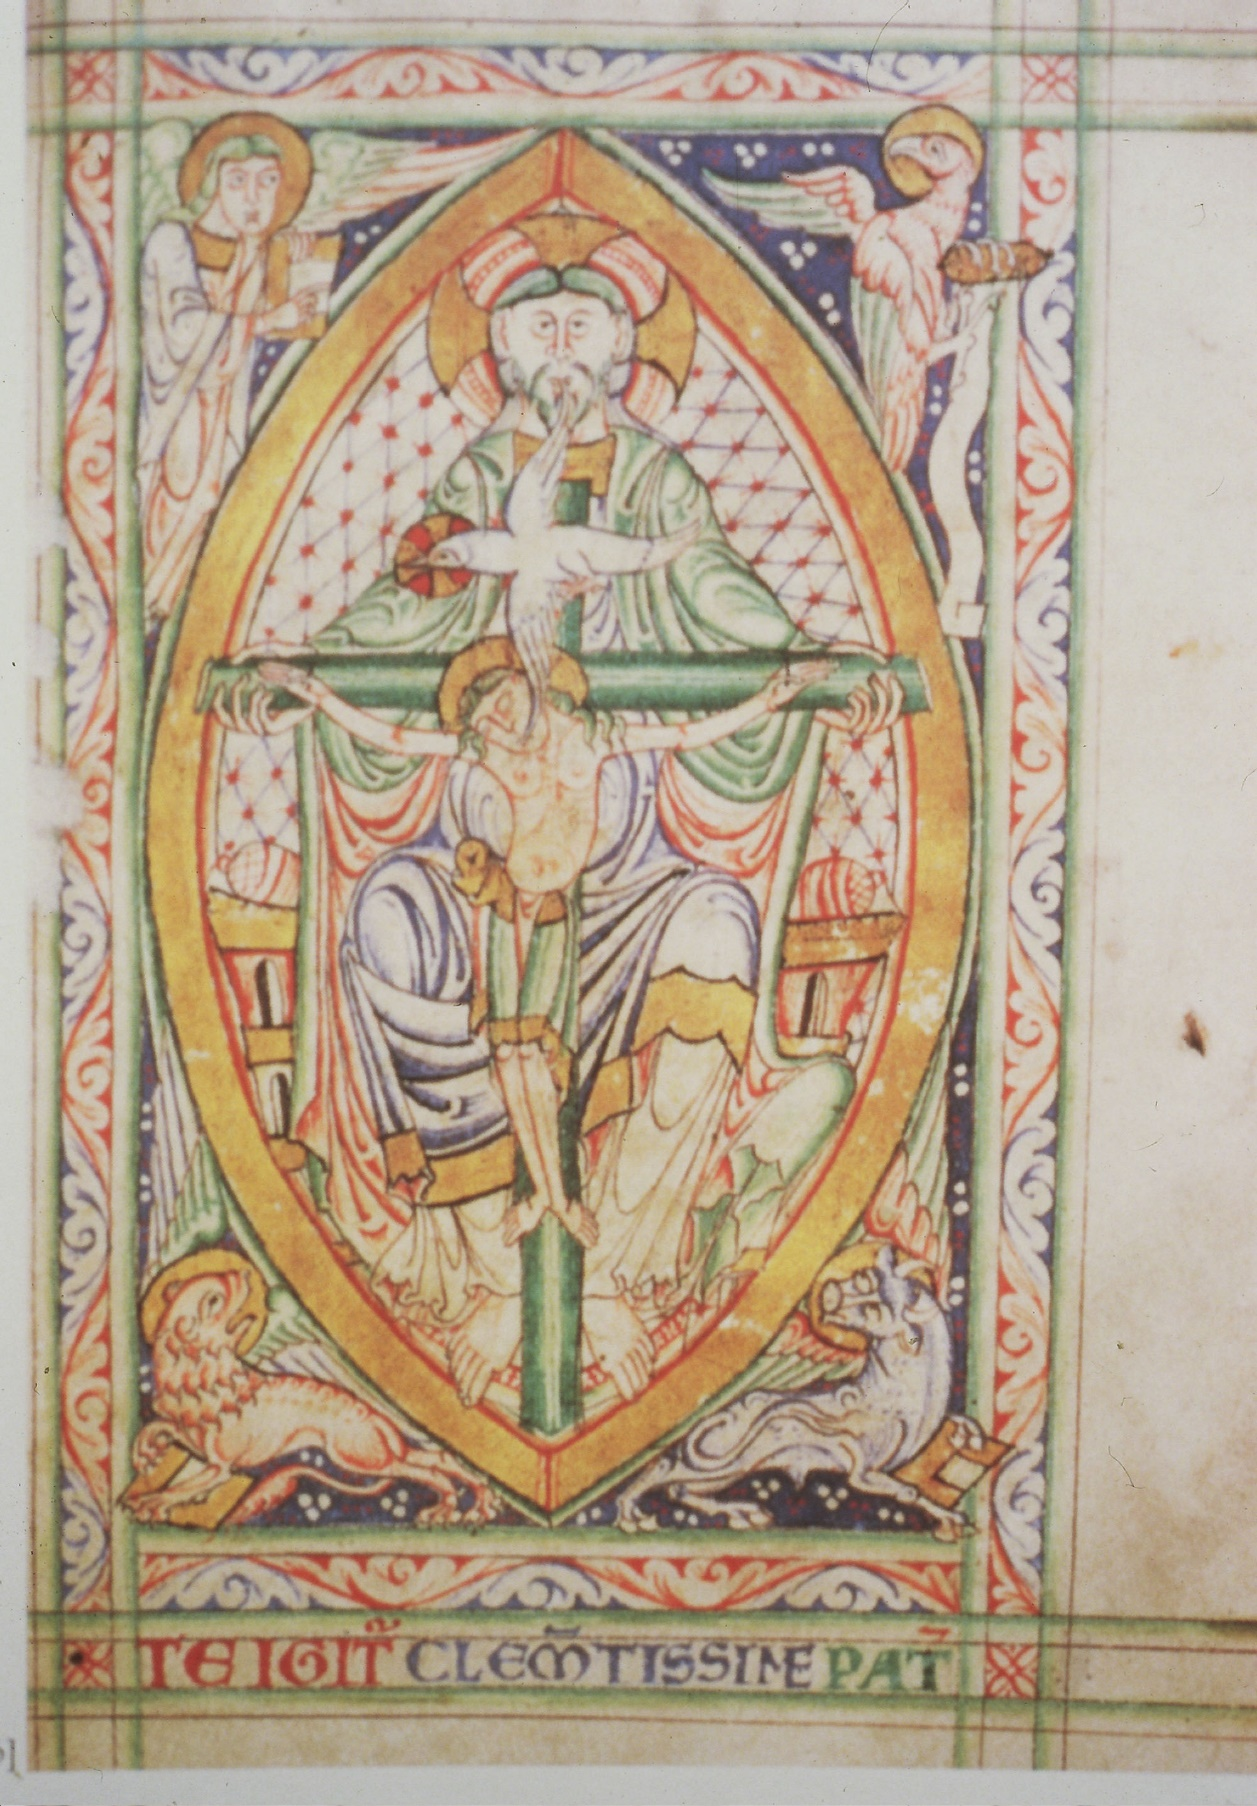 TE IGIT̃ CLEM̃TISSIME PAT̃